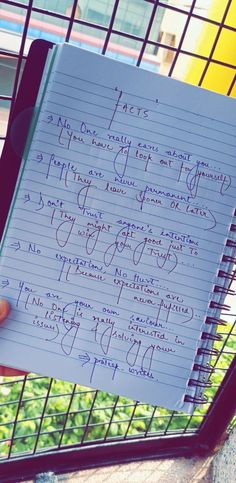 "FACTS"
→ No One really cares about you...
(You have to look out for yourself)
→ People are never permanent....
(They leave sooner OR later)
→ Don't Trust anyone's intentions
(They might act good just to
win your Trust)....
→ No expectations, No Hurt....
(because expectations are
never fulfilled)...
→ You are your own saviour...
(No One is really interested in
listening & solving your
issues)
→ patest writes..